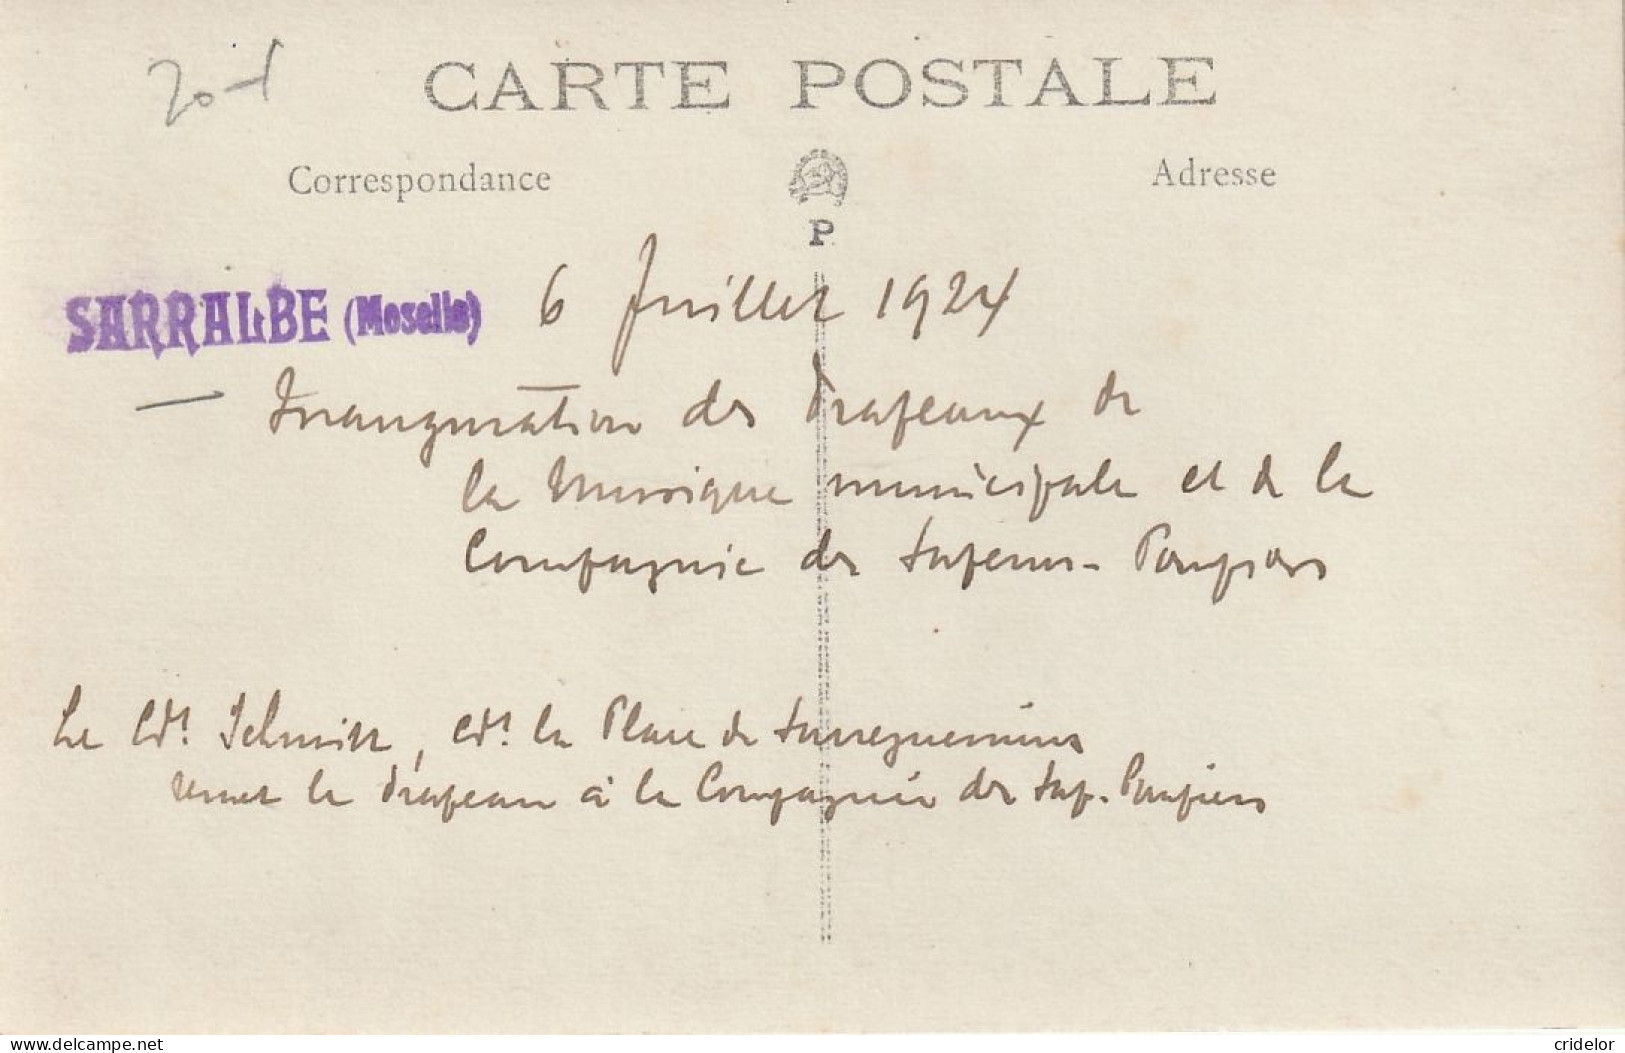 20-f
CARTE POSTALE
Correspondance Adresse
P
SARRALBE (Moselle) 6 Juillet 1924
— Inauguration des Drapeaux de
la Musique municipale et de la
Compagnie des Sapeurs-Pompiers
Le Cdt. Schmitt, Cdt. la Place de Sarreguemines
remet le drapeau à la Compagnie des Sap. Pompiers
www.delcampe.net cridelor